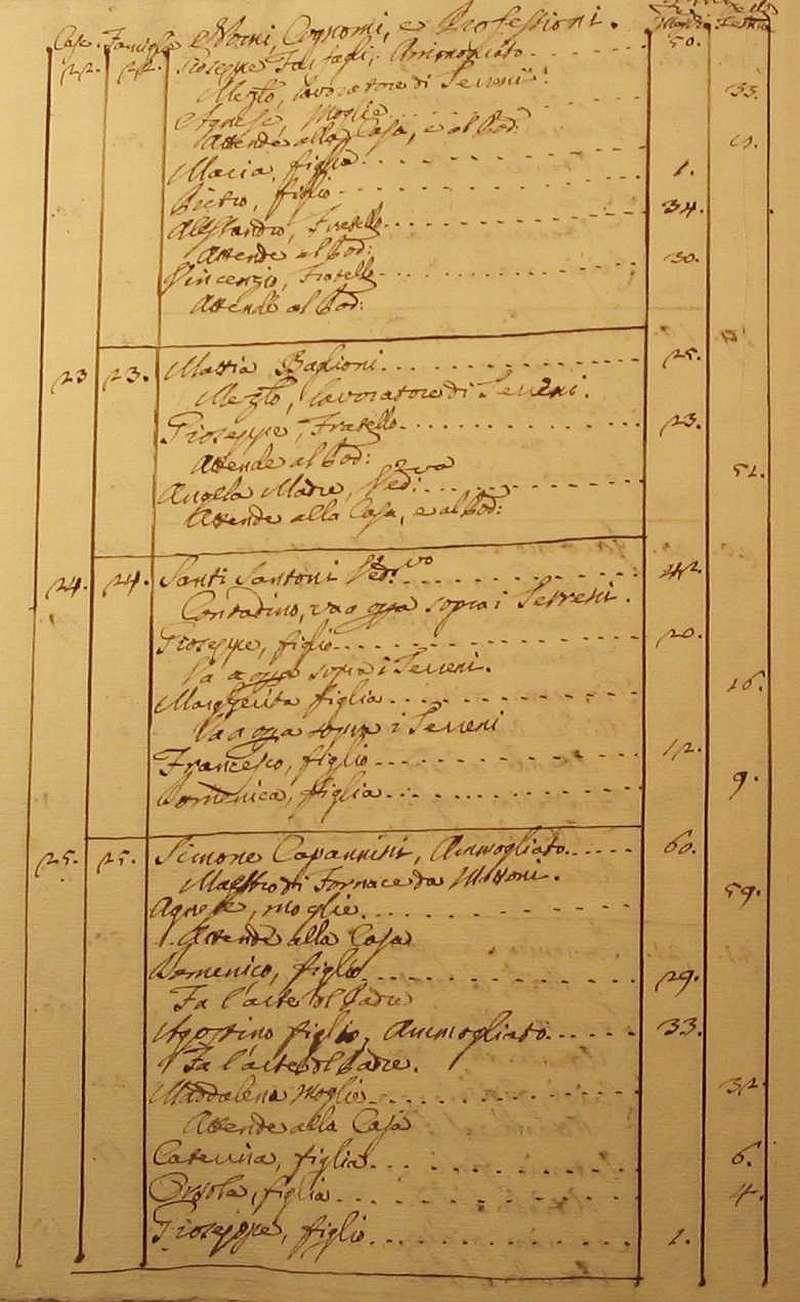 Case. Famiglie Nomi, Cognomi, e Professioni. Maschi Femine
22. 22. Gioseppe Ammogliato 50.
Mezzo, lavoratore di Terreni
Agnese, Moglie 33.
Attende alla Casa, e al Pod:
Maria, figlia 9.
Pietro, figlio 1.
Alessandro, Fratello 34.
Attende al Pod:
Vincenzio, Fratello 30.
Attende al Pod:
23 23. Mattia Baglioni 25.
Mezzo, lavoratore di Terreni.
Gioseppe, Fratello 23.
Attende al Pod:
Angela Madre, Ved:va 51.
Attende alla Casa, e al Pod:
24. 24. Santi Santoni Ved:vo 42.
Contadino, va a opra sopra i Terreni.
Gioseppe, figlio 20.
Va a opra sopra i Terreni.
Margherita figlia 16.
Va a opra sopra i Terreni
Francesco, figlio 12.
Domenica, figlia 9.
25. 25. Simone Capannini, Ammogliato 60.
Maestro di Fornace da Mattoni.
Agnese, moglie 59.
Attende alla Casa
Domenico, figlio 29.
Fa l'arte del Padre
Agostino figlio, Ammogliato 33.
Fa l'arte del Padre.
Maddalena Moglie 32.
Attende alla Casa
Caterina, figlia 6.
Orsola, figlia 4.
Gioseppe, figlio 1.